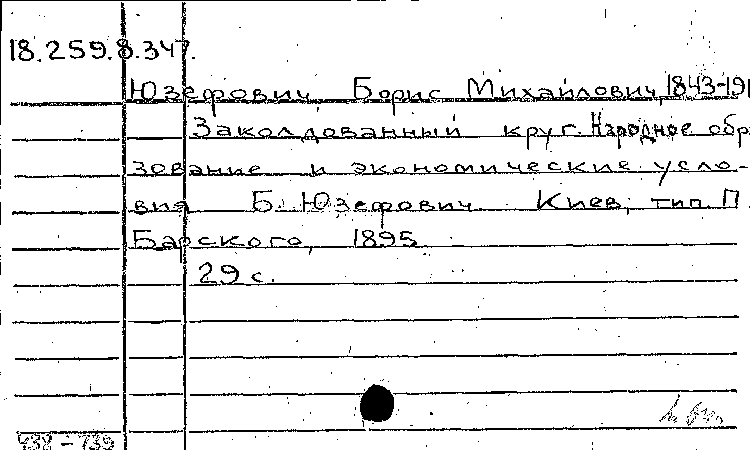 18.259.8.347.
Юзефович, Борис Михайлович, 1843-191
Заколдованный круг. Народное обр
зование и экономические усло-
вия Б. Юзефович. Киев, тип. П.
Барского, 1895
29 с.
738-739